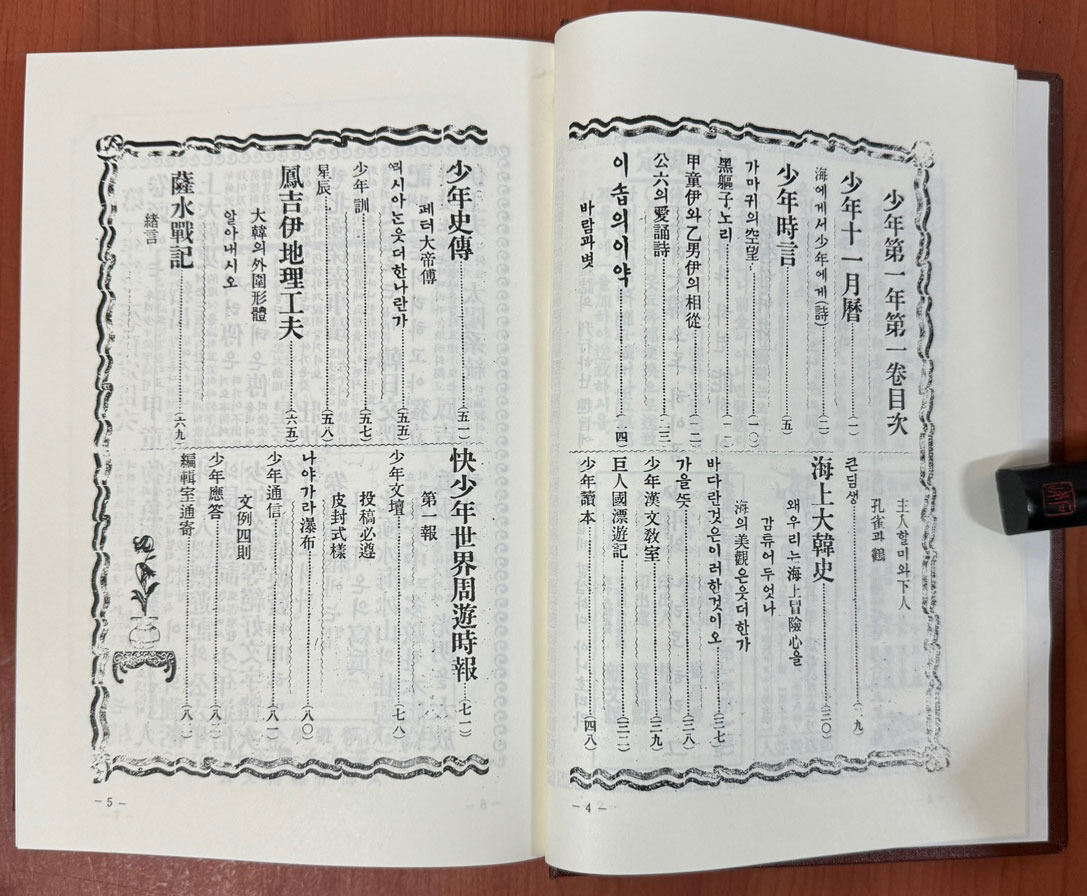 少年第一年第一卷目次
少年十一月曆 (一)
海에게서少年에게(詩) (二)
少年時言 (五)
가마귀의空望 (一〇)
黑軀子노리 (一一)
甲童伊와乙男伊의相從 (一二)
公六의愛誦詩 (二三)
이솝의이약 (二四)
바람과볏
主人할미와下人
孔雀과鶴
큰딤생 (二九)
海上大韓史 (三〇)
왜우리는海上冒險心을
감튜어두엇나
海의美觀은웃더한가
바다란것은이러한것이오 (三七)
가을뜻 (三八)
少年漢文敎室 (三九)
巨人國漂遊記 (四二)
少年讀本 (四八)
- 4 -
少年史傳 (五一)
페터大帝傳
러시아는웃더한나란가 (五五)
少年訓 (五七)
星辰 (五八)
鳳吉伊地理工夫 (六五)
大韓의外圍形體
알아내시오
薩水戰記 (六九)
緖言
快少年世界周遊時報 (七一)
第一報
少年文壇 (七八)
投稿必遵
皮封式樣
나야가라瀑布 (八〇)
少年通信 (八一)
文例四則
少年應答 (八二)
編輯室通寄 (八二)
- 5 -